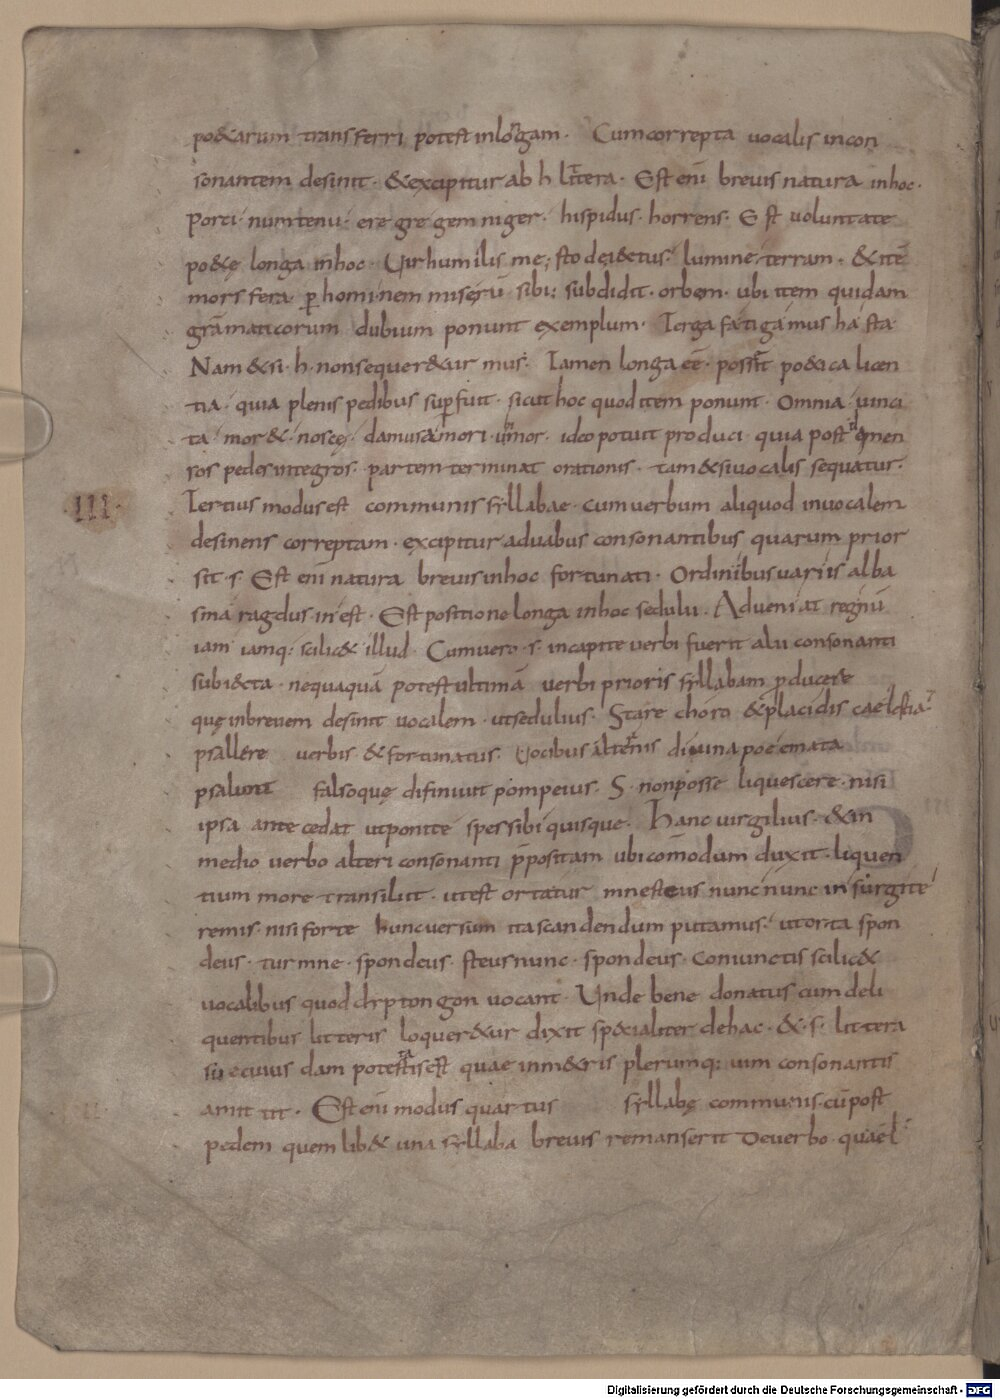 po&arum transferri potest inlongam· Cumcorrepta uocalis incon
sonantem desinit· &excipitur ab h littera· Est eni brevis natura inhoc·
Porci· numtenui· ere gre gem niger· hispidus· horrens· Est voluntate
po&ę longa inhoc· Vir humilis me; sto dei&etus· lumine terram· &ité
mors fera p hominem miserū sibi: subdidit· orbem· ubi item quidam
grāmaticorum dubium ponunt exemplum· Terga fatigamus hasta
Nam &si· h· nonsequer&ur mus· Tamen longa eē· possit po&ica licen
tia· quia plenis pedibus sup fuit· sicut hoc quod item ponunt· Omnia uinci
ta· mor &· noscę· damus&mori· ideo potuit produci· quia post
ros pedes integros· partem terminat orationis· tam&si uocalis sequatur·
III· Tertius modus est communis syllabae· cum uerbum aliquod inuocalem
desinens correptam· excipitur aduabus consonantibus quarum prior
sit· s· Est eni natura breuis inhoc fortunati· Ordinibus uariis alba
sma ragdus· in est· Est positione longa inhoc sedulu· Adueniat regnū
iam iamq: scilic& illud· Cumuero· s· incapite uerbi fuerit alii consonanti
subiecta· nequaquā potest ultimā uerbi prioris syllabam pducere
quę inbreuem desinit uocalem· utsedulius· Stare chori &placidis caelestia
psallere uerbis· &fortunatus· Uocibus alternis diuina poemata
psallunt falsoque difiniuit pompeius· S· nonposse liquescere· nisi
ipsa ante cedat ut ponite spes sibi quisque· Hanc uirgilius· &in
medio uerbo alteri consonanti ppositam ubi comodum duxit· liquen
tium more transiluit· utest ortatur mnesteus nunc nunc insurgite
remis· nisi forte hunc uersum ita scandendum putamus· ut orta spon
deus· tur mne· spondeus· steus nunc· spondeus· Coniunctis scilic&
uocalibus quod diptongon uocant· Unde bene donatus cum de li
quentibus litteris loquer&ur dixit sp&ialiter dehac· &· s· littera
sue cuius dam potestatis est quae inm&ris plerumq: uim consonantis
amit tit· Est eni modus quar tus syllabę communis· cū post
pedem quem lib& una syllaba breuis remanserit deuerbo· quae l